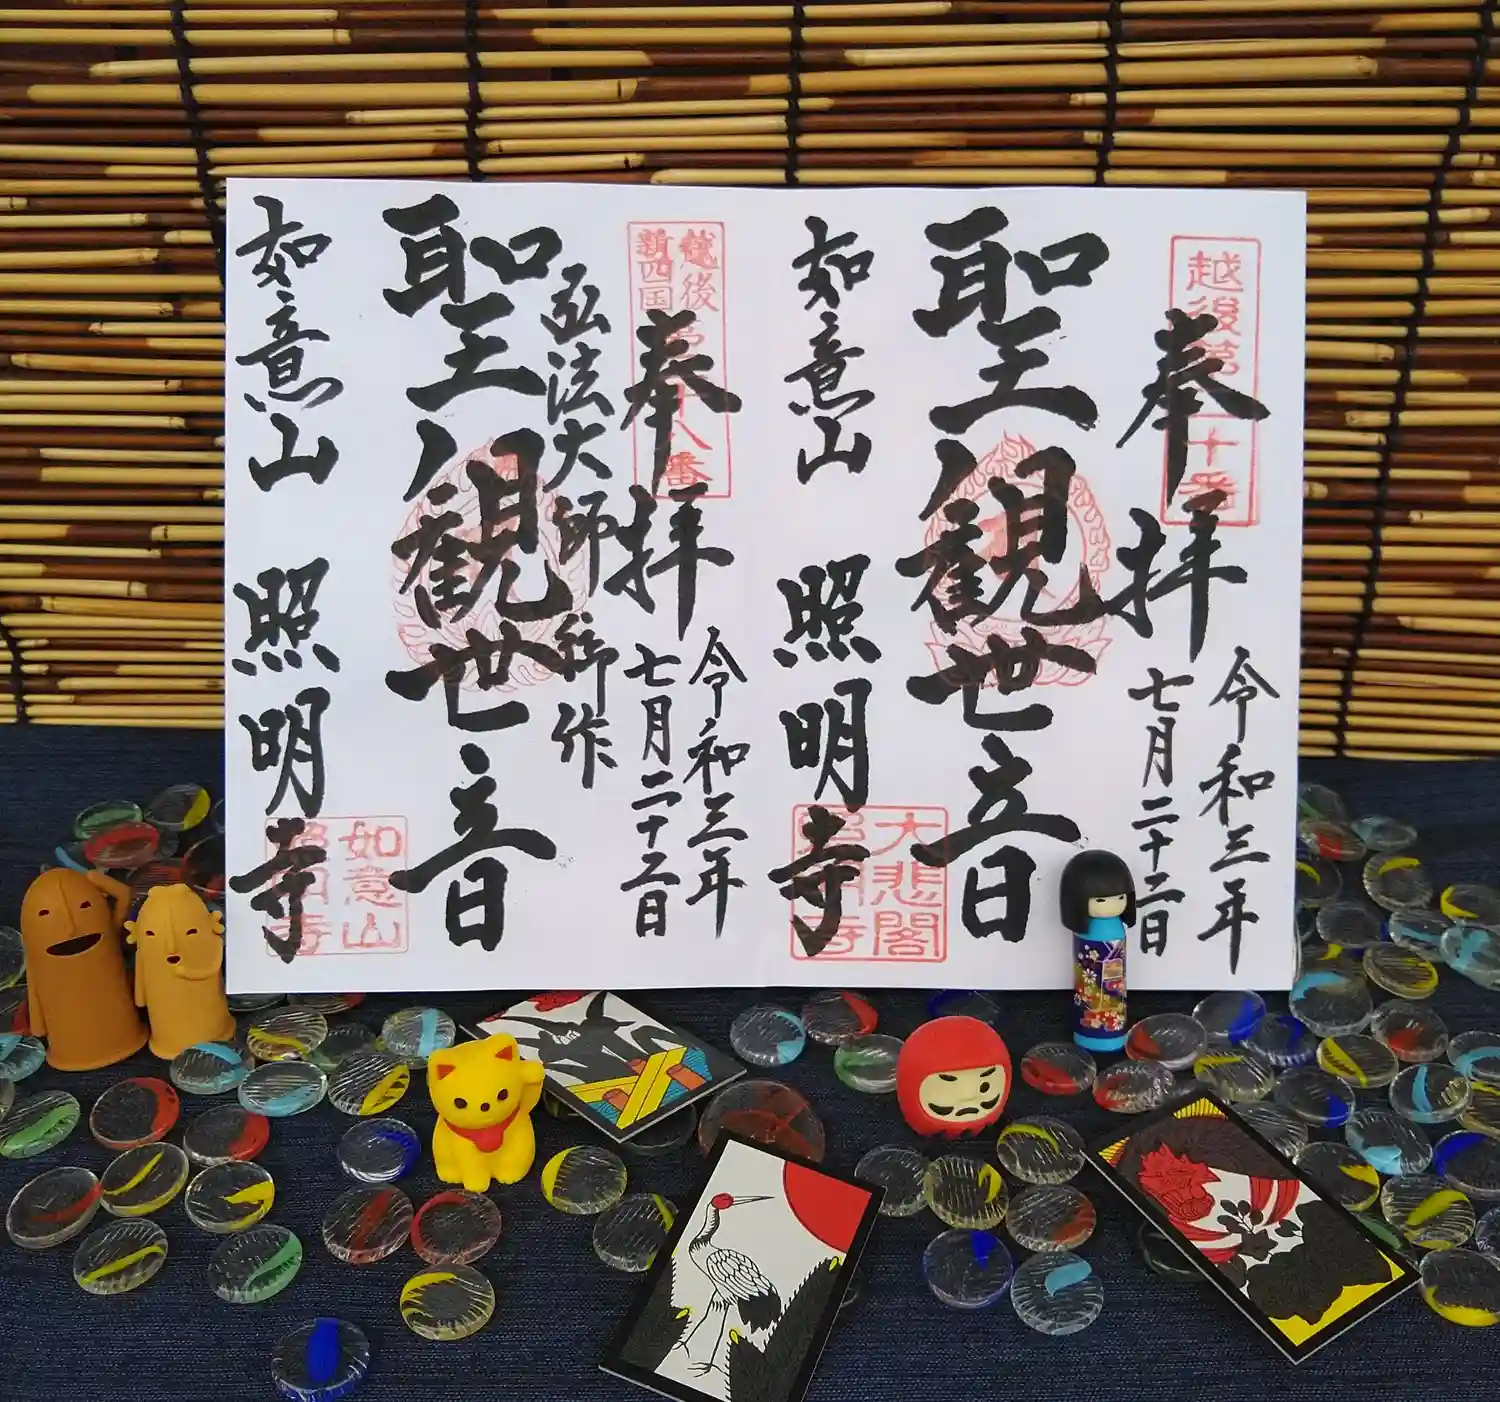 奉拝
令和三年
七月二十二日
聖観世音
如意山 照明寺
大悲閣
越後
新四国
八番
奉拝
令和三年
七月二十二日
弘法大師御作
聖観世音
如意山 照明寺
如意山